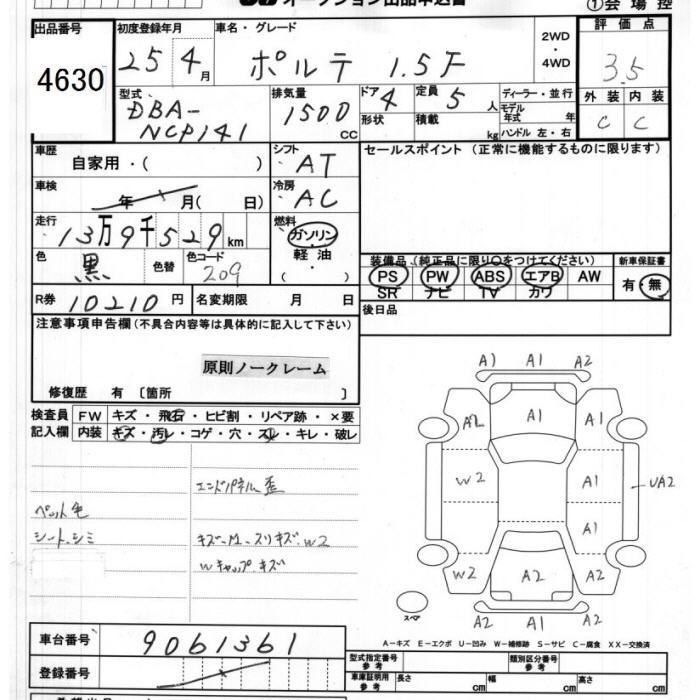 オークション出品申込書
①会場控
出品番号
4630
初度登録年月
25年4月
車名・グレード
ポルテ 1.5F
2WD
・
4WD
評価点
3.5
外装 内装
C C
型式
DBA-
NCP141
排気量
1500
cc
ドア
4
形状
定員
5人
積載
kg
ディーラー・並行
モデル
年式 年
ハンドル 左・右
車歴
自家用・( )
シフト
AT
セールスポイント (正常に機能するものに限ります)
車検
年 月( 日)
冷房
AC
走行
13万9千529km
燃料
ガソリン・
軽油・
( )
色
黒
色替
色コード
209
装備品(純正品に限り○をつけてください)
PS PW ABS エアB AW
SR ナビ TV カワ
新車保証書
有・無
R券 10210円
名変期限 月 日
後日品
注意事項申告欄(不具合内容等は具体的に記入して下さい)
原則ノークレーム
修復歴 有 〔箇所 〕
検査員
記入欄
FW キズ・飛石・ヒビ割・リペア跡・×要
内装 キズ・汚レ・コゲ・穴・スレ・キレ・破レ
エンドパネル歪
ペット毛
シート.シミ
キズ.M.スリキズ.W2
Wキャップ.キズ
A1 A1 A2
A2 A1 A1
W2 A1 UA2
A1
W2 A2 A2
A2 A1 A2
スペア
A-キズ E-エクボ U-凹み W-補修跡 S-サビ C-腐食 XX-交換済
車台番号
9061361
登録番号
型式指定番号
参考
類別区分番号
参考
車庫証明用
参考
長さ cm
幅 cm
高さ cm